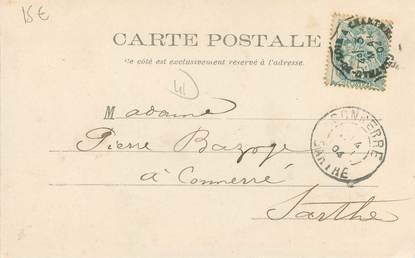 15€
CARTE POSTALE
Ce côté est exclusivement réservé à l'adresse.
Madame
Pierre Bazoge
à Connerré
Sarthe
CONNERRÉ
04
SARTHE